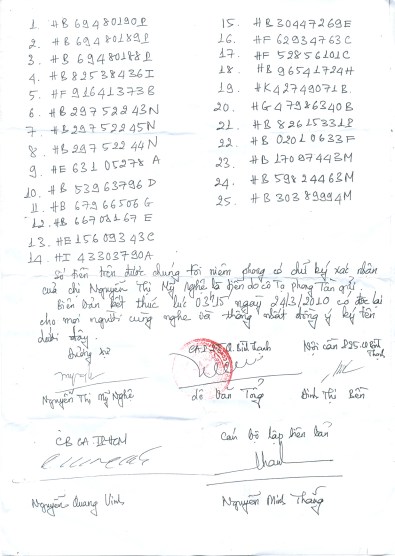 1. #B 69480190P
2. #B 69480189P
3. #B 69480188P
4. #B 82538436I
5. #F 91641373B
6. #B 29752243N
7. #B 29752245N
8. #B 29752244N
9. #E 63105278 A
10. #B 53963796 D
11. #B 67966506 G
12. #B 66708167 E
13. #E 15609343C
14. #I 43303790A
15. #B 30447269E
16. #F 62934763C
17. #F 52856101C
18. #B 96541724H
19. #K 42749071B
20. #G 47986340B
21. #B 82615331P
22. #B 02010633F
23. #B 17097443M
24. #B 59824463M
25. #B 30389994M
Số tiền trên được chúng tôi niêm phong có chữ ký xác nhận
của chị Nguyễn Thị Mỹ Nghê là tiền do cô Tạ Phong Tần gửi
Biên bản kết thúc lúc 03h15 ngày 24/3/2010 có đọc lại
cho mọi người cùng nghe và thống nhất đồng ý ký tên
dưới đây.
Đương sự
CA Q. Bình Thạnh
Nguyễn Thị Mỹ Nghê
Đỗ Văn Tổng
Đinh Thị Bền
CB CA TPHCM
Cán bộ lập biên bản
Nguyễn Quang Vinh
Nguyễn Minh Thắng